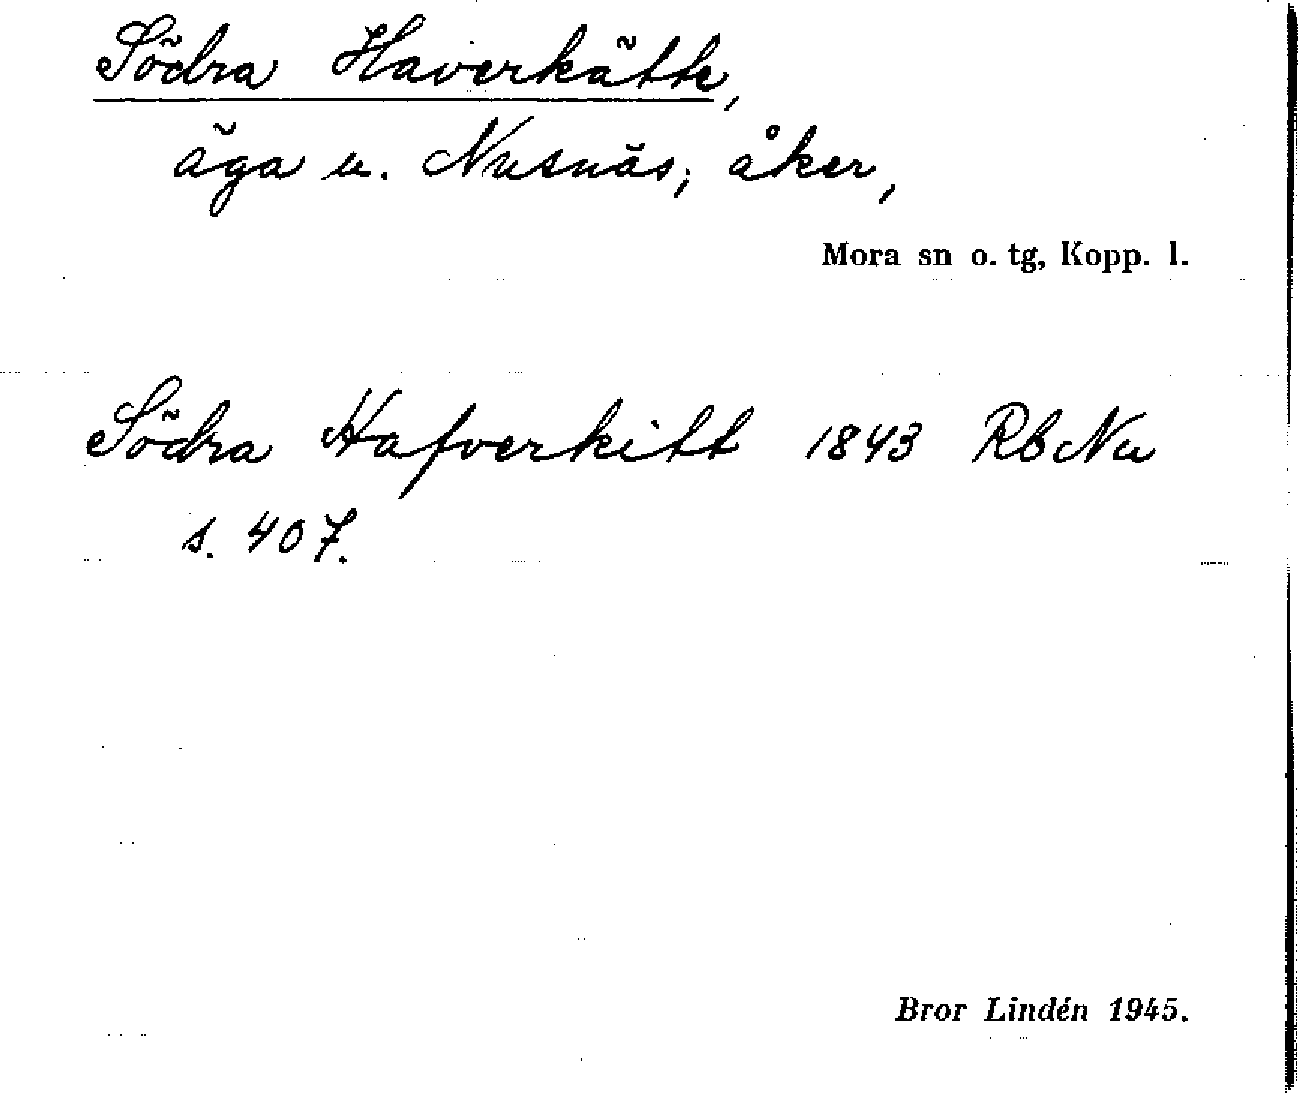 Södra Haverkätte,
äga u. Nusnäs; åker,
Mora sn o. tg, Kopp. l.
Södra Hafverkitt 1843 RbNu
s. 407.
Bror Lindén 1945.